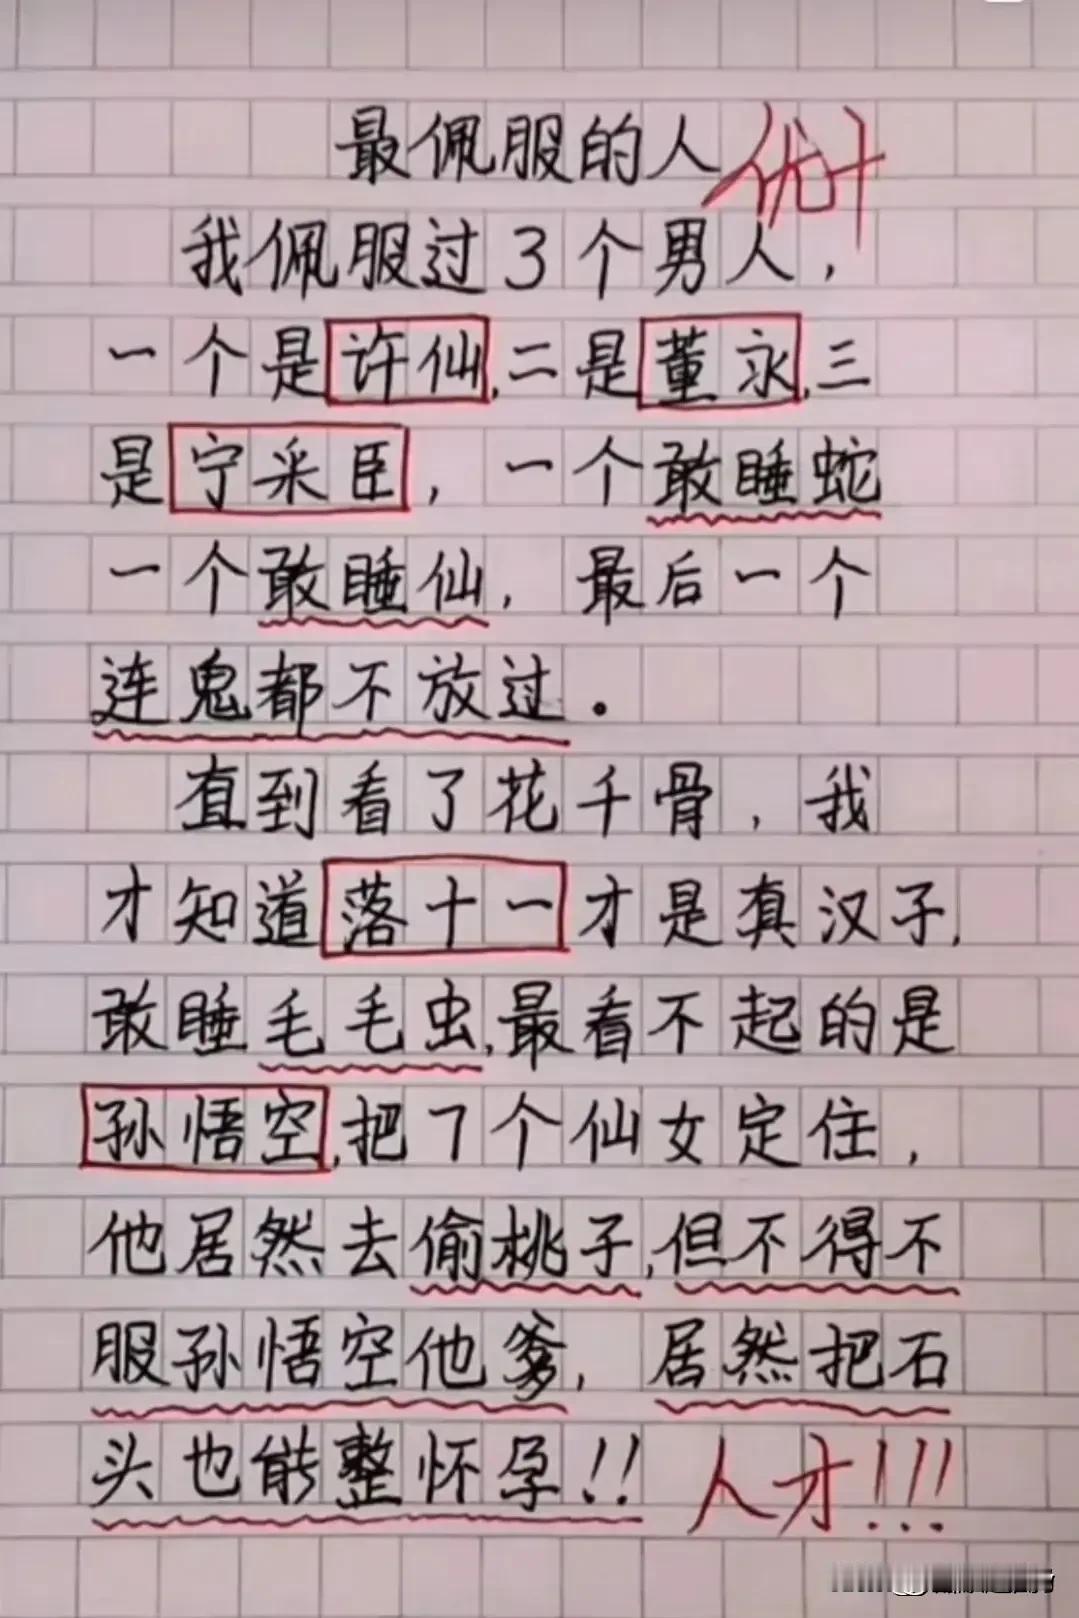 最佩服的人 优+
我佩服过3个男人，
一个是许仙，二是董永，三
是宁采臣，一个敢睡蛇
一个敢睡仙，最后一个
连鬼都不放过。
直到看了花千骨，我
才知道落十一才是真汉子，
敢睡毛毛虫，最看不起的是
孙悟空，把7个仙女定住，
他居然去偷桃子，但不得不
服孙悟空他爹，居然把石
头也能整怀孕！！ 人才！！！